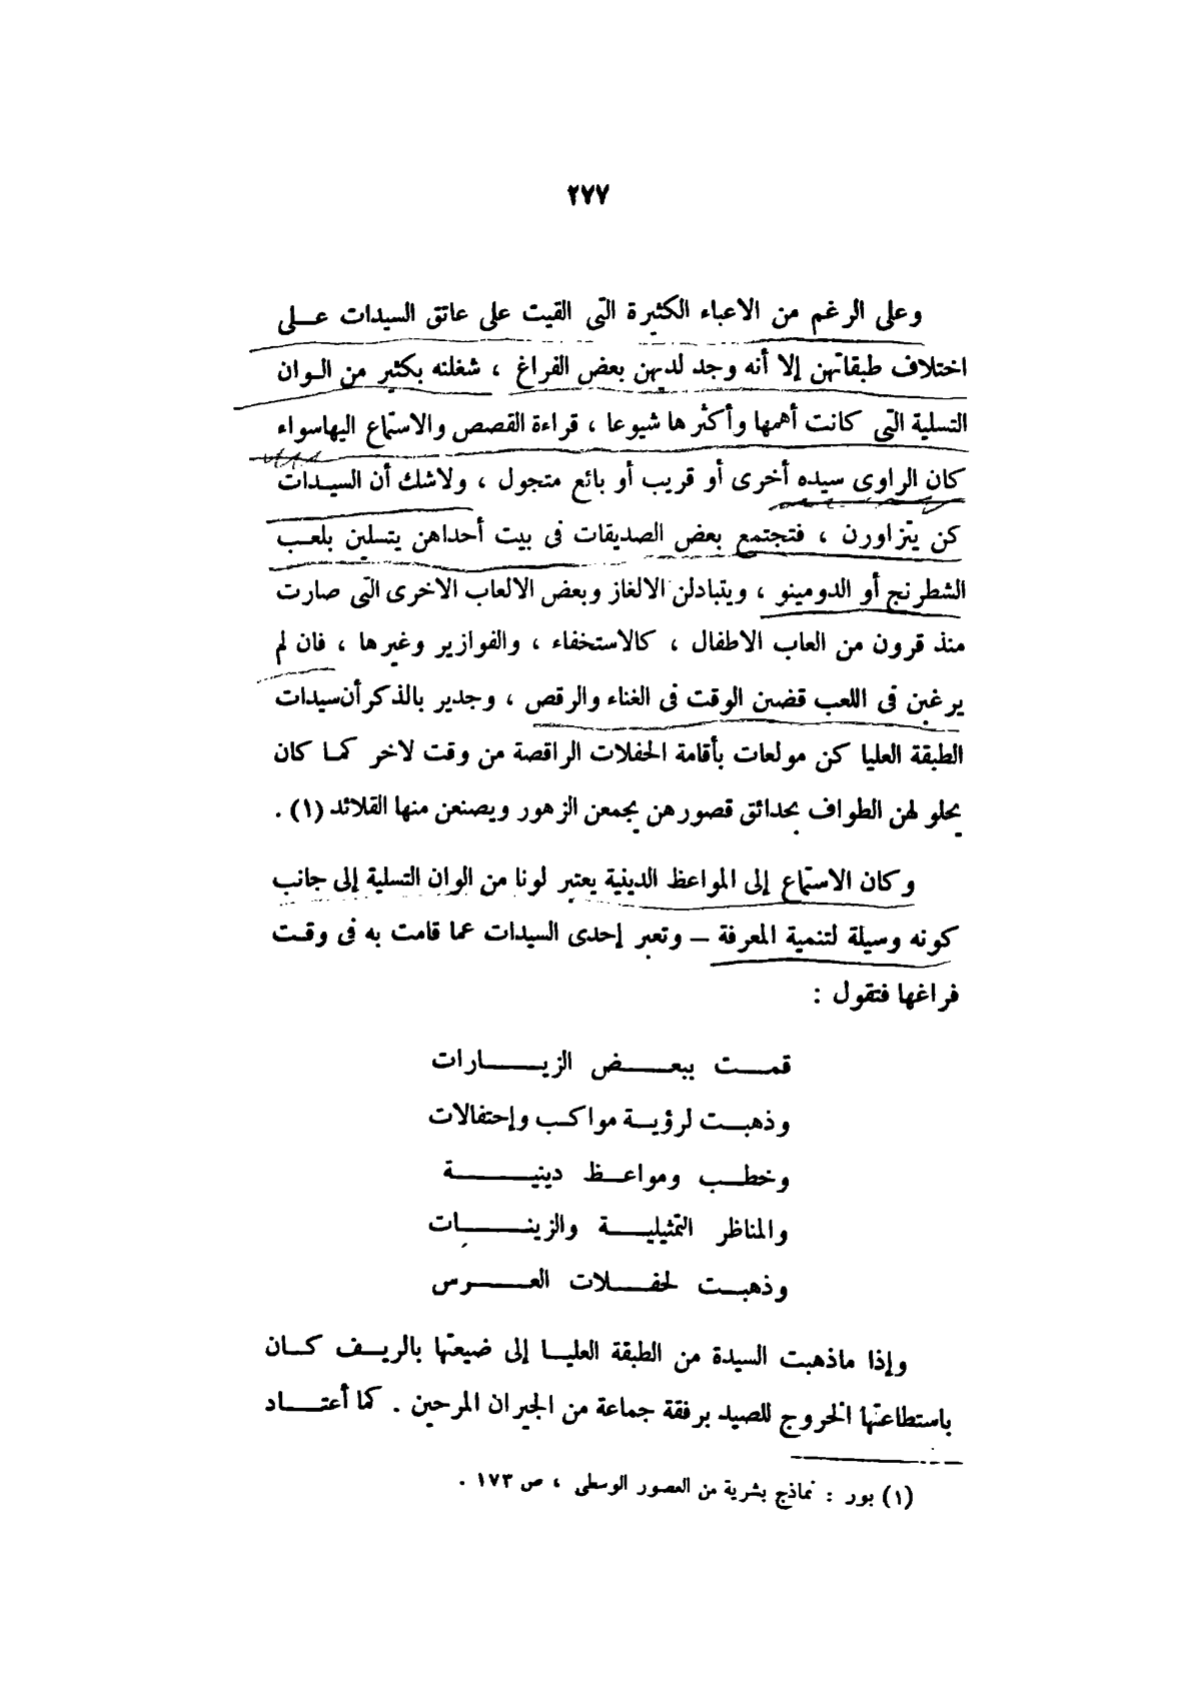 ٢٧٧
وعلى الرغم من الاعباء الكثيرة التى القيت على عاتق السيدات على
اختلاف طبقاتهن إلا أنه وجد لديهن بعض الفراغ ، شغلنه بكثير من الوان
التسلية التى كانت أهمها وأكثرها شيوعا ، قراءة القصص والاستماع اليهاسواء
كان الراوى سيده أخرى أو قريب أو بائع متجول ، ولاشك أن السيدات
كن يتزاورن ، فتجتمع بعض الصديقات فى بيت أحداهن يتسلين بلعب
الشطرنج أو الدومينو ، ويتبادلن الالغاز وبعض الالعاب الاخرى التى صارت
منذ قرون من العاب الاطفال ، كالاستخفاء ، والفوازير وغيرها ، فان لم
يرغبن فى اللعب قضين الوقت فى الغناء والرقص ، وجدير بالذكر أن سيدات
الطبقة العليا كن مولعات بأقامة الحفلات الراقصة من وقت لاخر كما كان
يحلو لهن الطواف بحدائق قصورهن يجمعن الزهور ويصنعن منها القلائد (١) .
وكان الاستماع إلى المواعظ الدينية يعتبر لونا من الوان التسلية إلى جانب
كونه وسيلة لتنمية المعرفة – وتعبر إحدى السيدات عما قامت به فى وقت
فراغها فتقول :
قمت ببعض الزيارات
وذهبت لرؤية مواكب وإحتفالات
وخطب ومواعظ دينية
والمناظر التمثيلية والزينات
وذهبت لحفلات العرس
وإذا ماذهبت السيدة من الطبقة العليا إلى ضيعتها بالريف كان
باستطاعتها الخروج للصيد برفقة جماعة من الجيران المرحين . كما أعتاد
(١) بور : نماذج بشرية من العصور الوسطى ، ص ١٧٣ .